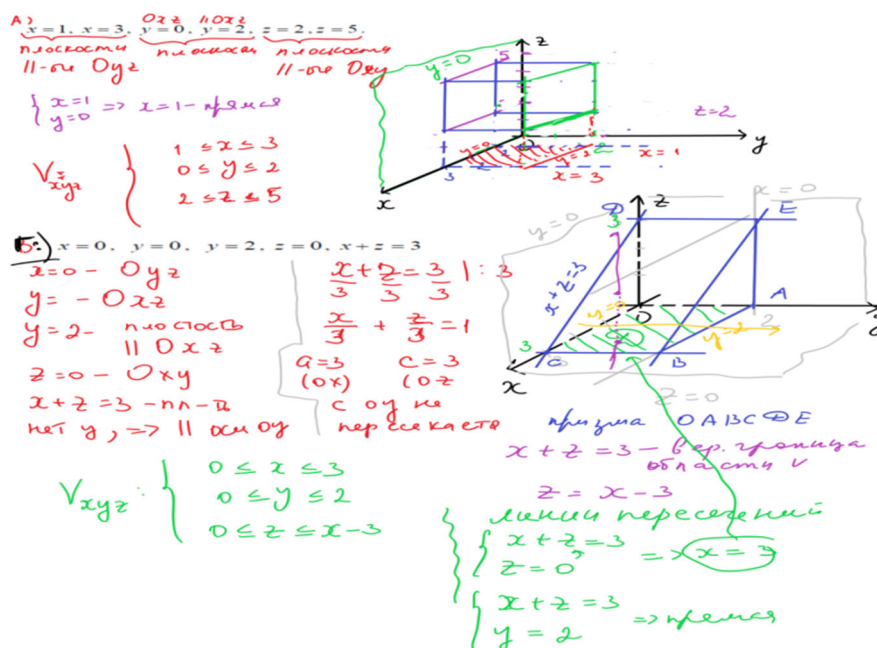 A)
Oxz || Oxz
x=1, x=3, y=0, y=2, z=2, z=5.
плоскости плоскости плоскости
||-ые Oyz ||-ые Oxy
{ x=1
y=0 => x=1 - прямая
Vxyz:
{ 1 ≤ x ≤ 3
0 ≤ y ≤ 2
2 ≤ z ≤ 5
z
y=0
5
z=2
y
O
2
y=0
y=2
x=1
3
x=3
x
Б:) x=0, y=0, y=2, z=0, x+z=3
x=0 - Oyz
y= - Oxz
y=2- плостость
|| Oxz
z=0 - Oxy
x+z=3 -пл-ть
нет y, => || оси Oy
x/3 + z/3 = 3/3 |:3
x/3 + z/3 = 1
a=3 c=3
(Ox) (Oz
с Oy не
пересекается
Vxyz:
{ 0 ≤ x ≤ 3
0 ≤ y ≤ 2
0 ≤ z ≤ x-3
z
x=0
D
E
3
y=0
x+z=3
O
A
y
y=0
2
y=2
3
C
B
x
z=0
призма OABCDE
x+z=3 - вер. граница
области V
z = x-3
линии пересечений
{ x+z=3
z=0 => x=3
{ x+z=3
y=2 => прямая